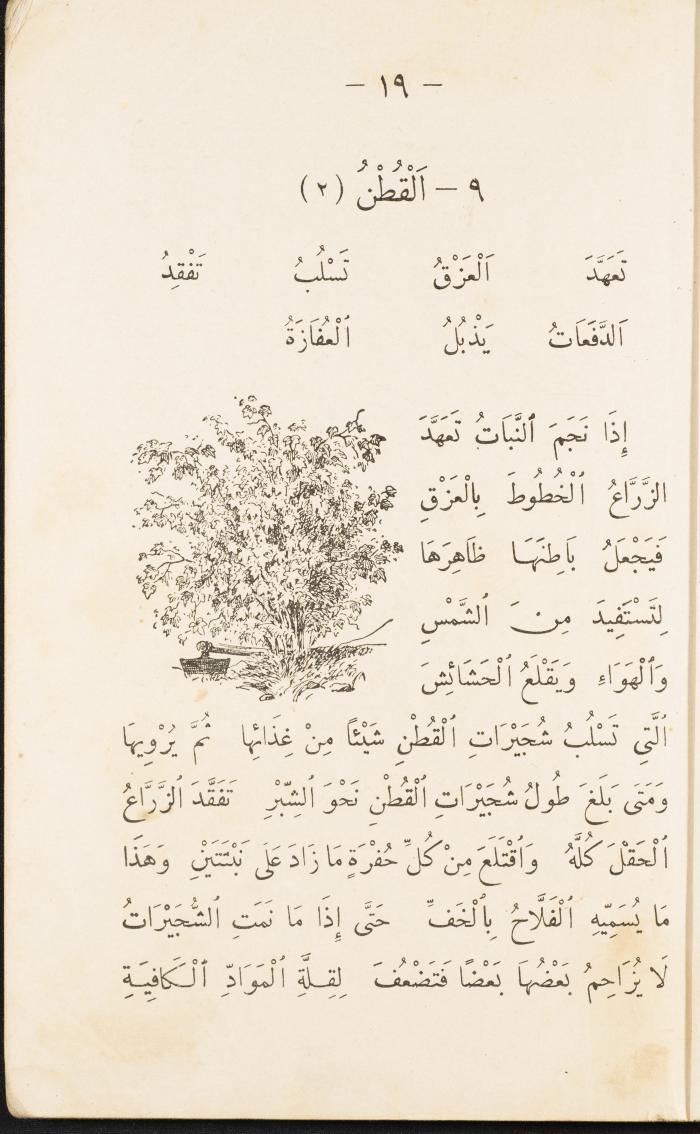 – ١٩ –
٩ – اَلْقُطْنُ ( ٢ )
تَعَهَّدَ اَلْعَزْقُ تَسْلُبُ تَفْقِدُ
اَلدَّفَعَاتُ يَذْبُلُ ٱلْعُفَازَةُ
إِذَا نَجَمَ ٱلنَّبَاتُ تَعَهَّدَ
الزَّرَّاعُ ٱلْخُطُوطَ بِالْعَزْقِ
فَيَجْعَلُ بَاطِنَهَا ظَاهِرَهَا
لِتَسْتَفِيدَ مِنَ ٱلشَّمْسِ
وَٱلْهَوَاءِ وَيَقْلَعُ ٱلْحَشَائِشَ
ٱلَّتِي تَسْلُبُ شُجَيْرَاتِ ٱلْقُطْنِ شَيْئًا مِنْ غِذَائِهَا ثُمَّ يُرْوِيهَا
وَمَتَى بَلَغَ طُولُ شُجَيْرَاتِ ٱلْقُطْنِ نَحْوَ ٱلشِّبْرِ تَفَقَّدَ ٱلزَّرَّاعُ
ٱلْحَقْلَ كُلَّهُ وَٱقْتَلَعَ مِنْ كُلِّ حُفْرَةٍ مَا زَادَ عَلَى نَبْتَتَيْنِ وَهَذَا
مَا يُسَمِّيهِ ٱلْفَلَّاحُ بِٱلْخَفِّ حَتَّى إِذَا مَا نَمَتِ ٱلشُّجَيْرَاتُ
لَا يُزَاحِمُ بَعْضُهَا بَعْضًا فَتَضْعُفَ لِقِلَّةِ ٱلْمَوَادِّ ٱلْكَافِيَةِ